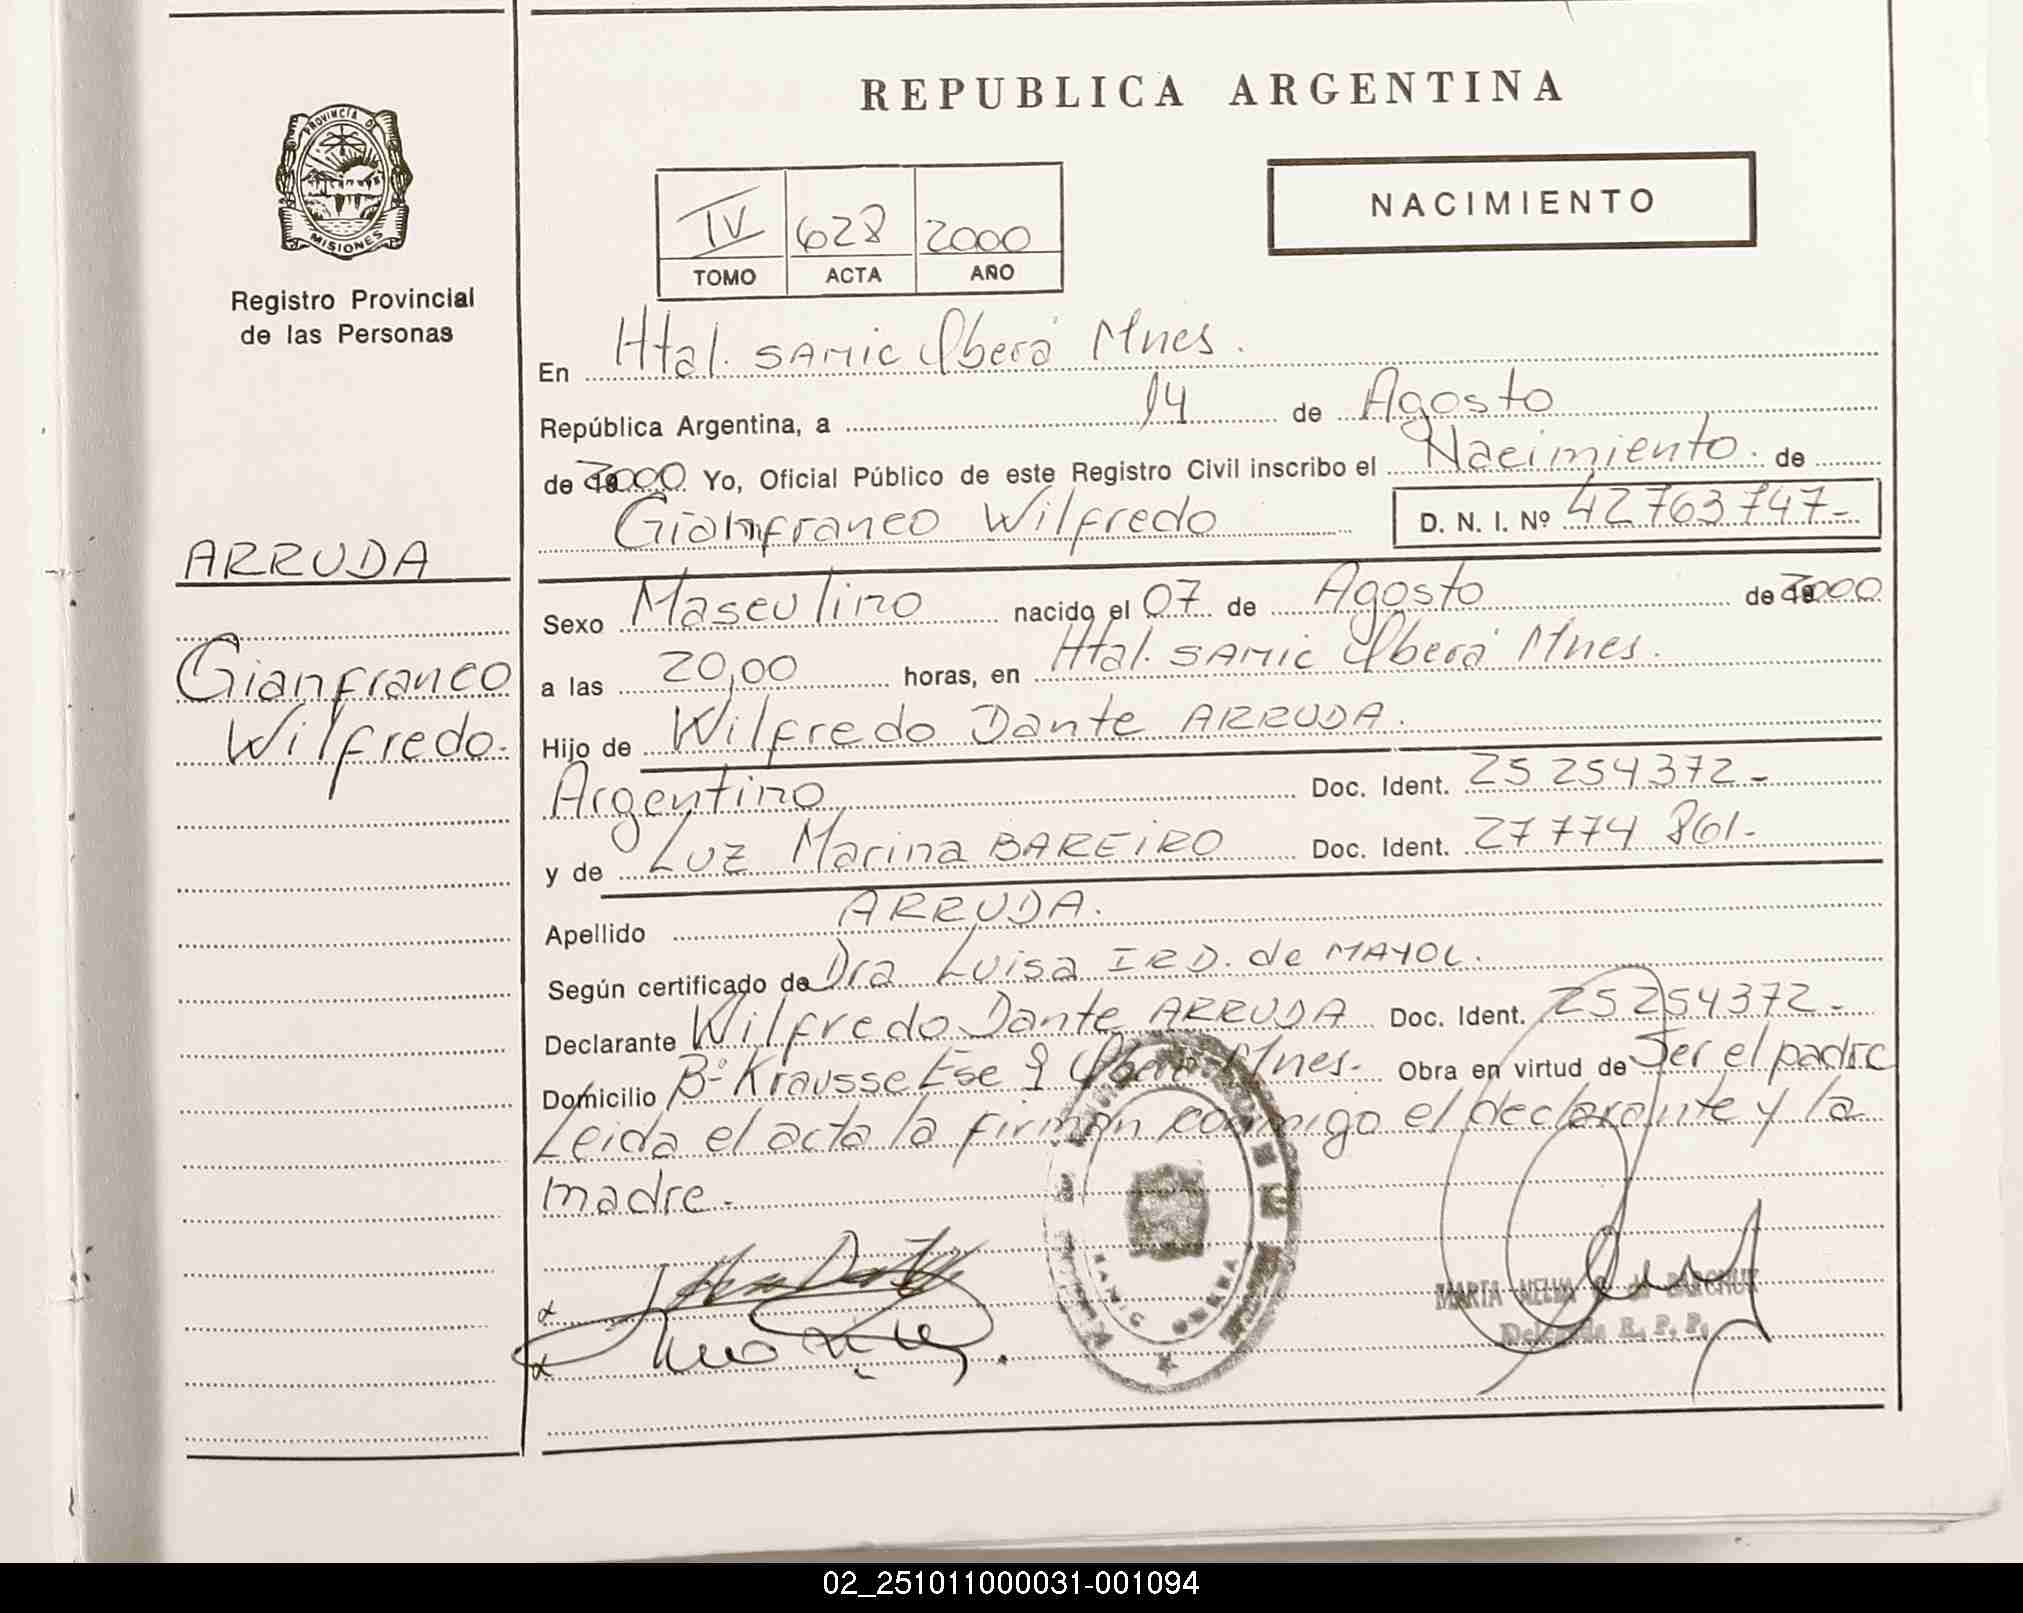 REPUBLICA ARGENTINA
PROVINCIA DE
MISIONES
Registro Provincial
de las Personas
IV 628 2000
TOMO ACTA AÑO
NACIMIENTO
En Htal. SAMIC Oberá Mnes.
República Argentina, a 14 de Agosto
de 2000 Yo, Oficial Público de este Registro Civil inscribo el Nacimiento. de
Gianfranco Wilfredo D. N. I. Nº 42763747-
ARRUDA
Gianfranco
Wilfredo.
Sexo Masculino nacido el 07 de Agosto de 2000
a las 20,00 horas, en Htal. SAMIC Oberá Mnes.
Hijo de Wilfredo Dante ARRUDA.
Argentino Doc. Ident. 25 254372-
y de Luz Marina BAREIRO Doc. Ident. 27 774 861-
Apellido ARRUDA.
Según certificado de Dra Luisa IRD. de MAYOL.
Declarante Wilfredo Dante ARRUDA Doc. Ident. 25254372-
Domicilio Bº Krausse Ese 9 Oberá Mnes. Obra en virtud de Ser el padre
Leida el acta la firman conmigo el declarante y la
madre.-
SAMIC OBERA
MARTA
Delegada R. P. P.
02_251011000031-001094